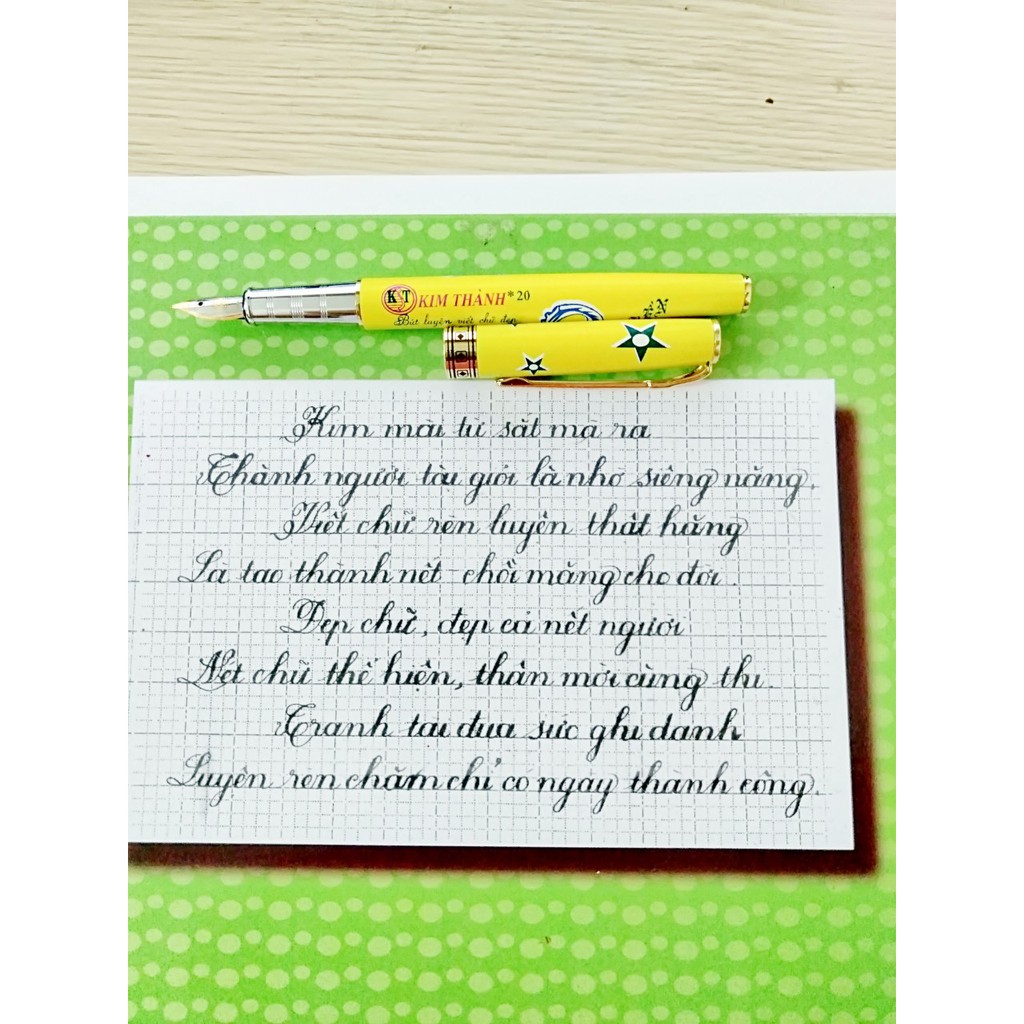 KT KIM THÀNH * 20
Bút luyện viết chữ đẹp
Kim mài từ sắt mà ra
Thành người tài giỏi là nhờ siêng năng.
Viết chữ rèn luyện thật hăng
Là tạo thành nết chồi măng cho đời.
Đẹp chữ, đẹp cả nết người
Nét chữ thể hiện, thân mời cùng thi.
Tranh tài đua sức ghi danh
Luyện rèn chăm chỉ có ngày thành công.